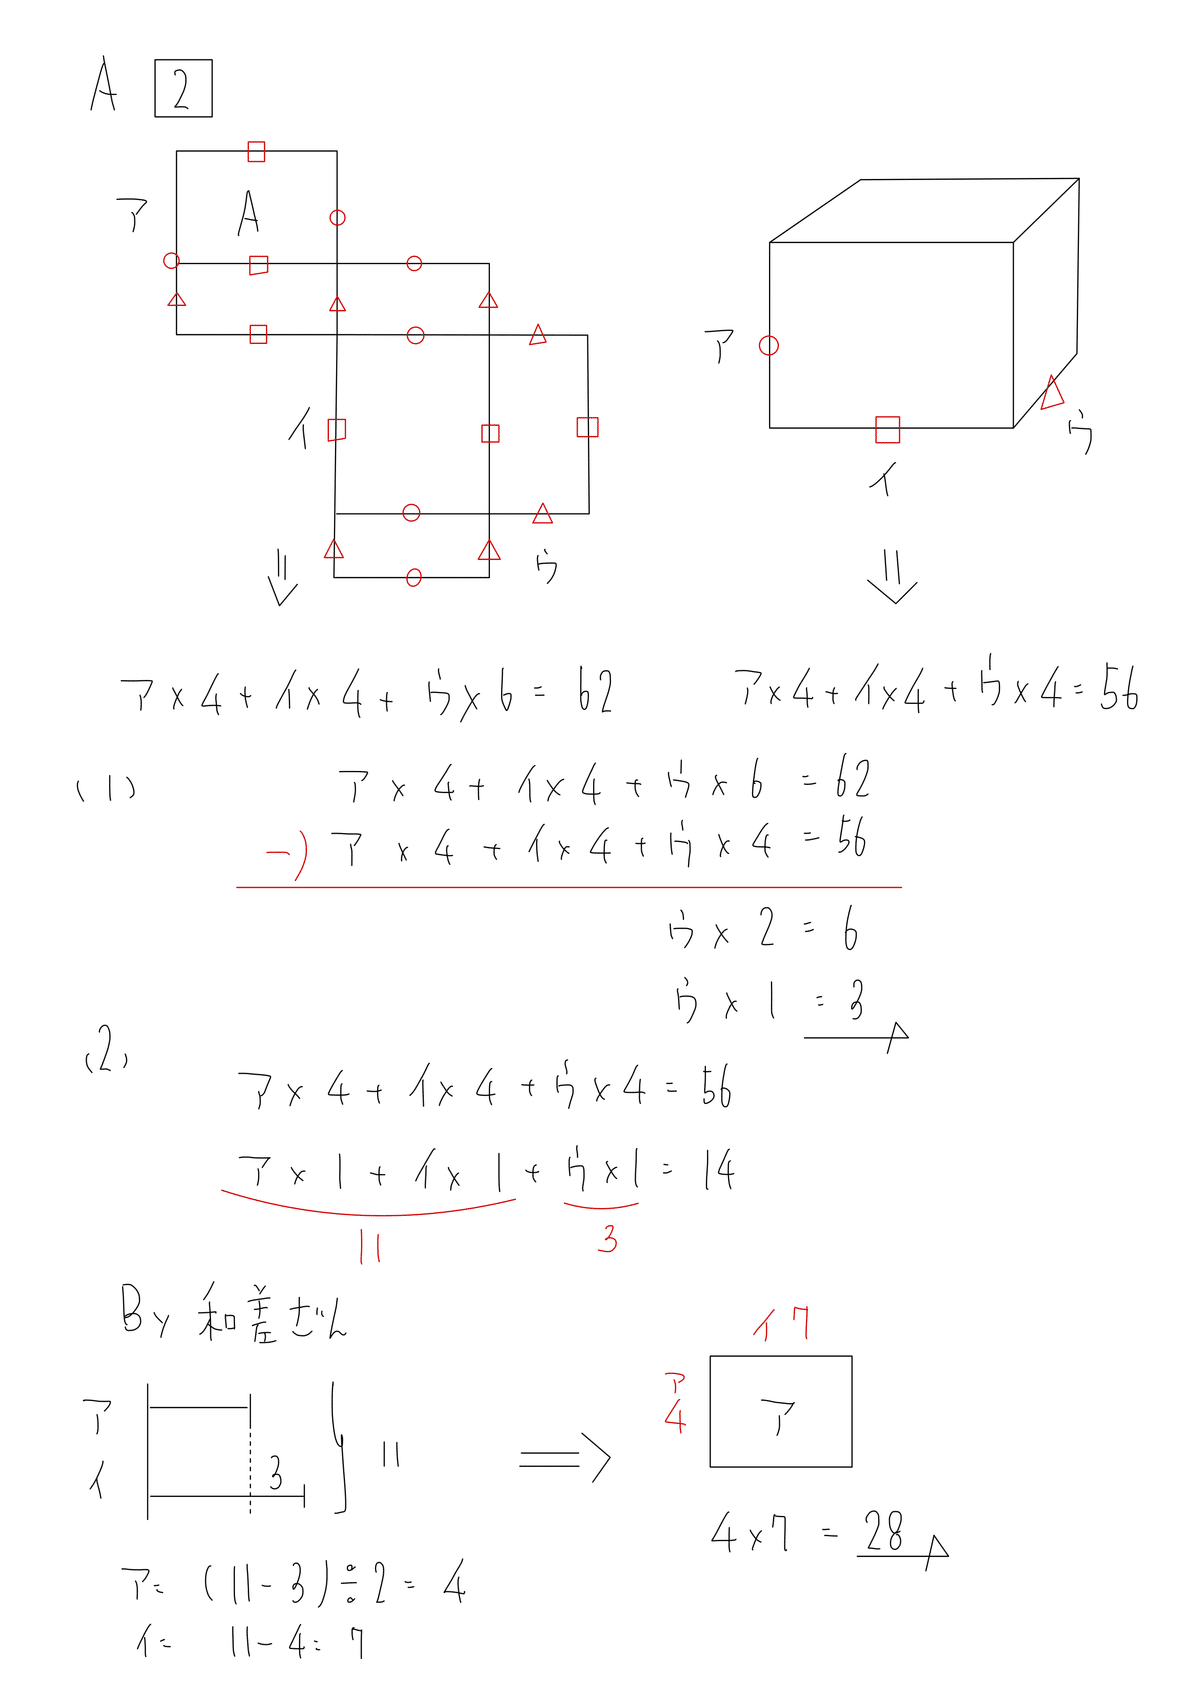 A 2
ア
A
イ
ウ
ア
イ
ウ
ア×4+イ×4+ウ×6=62
ア×4+イ×4+ウ×4=56
(1)
ア×4+イ×4+ウ×6=62
-) ア×4+イ×4+ウ×4=56
ウ×2=6
ウ×1=3
(2)
ア×4+イ×4+ウ×4=56
ア×1+イ×1+ウ×1=14
11 3
By 和差ざん
ア
イ
3
11
イ7
ア
4
ア
4×7=28
ア=(11-3)÷2=4
イ=11-4=7